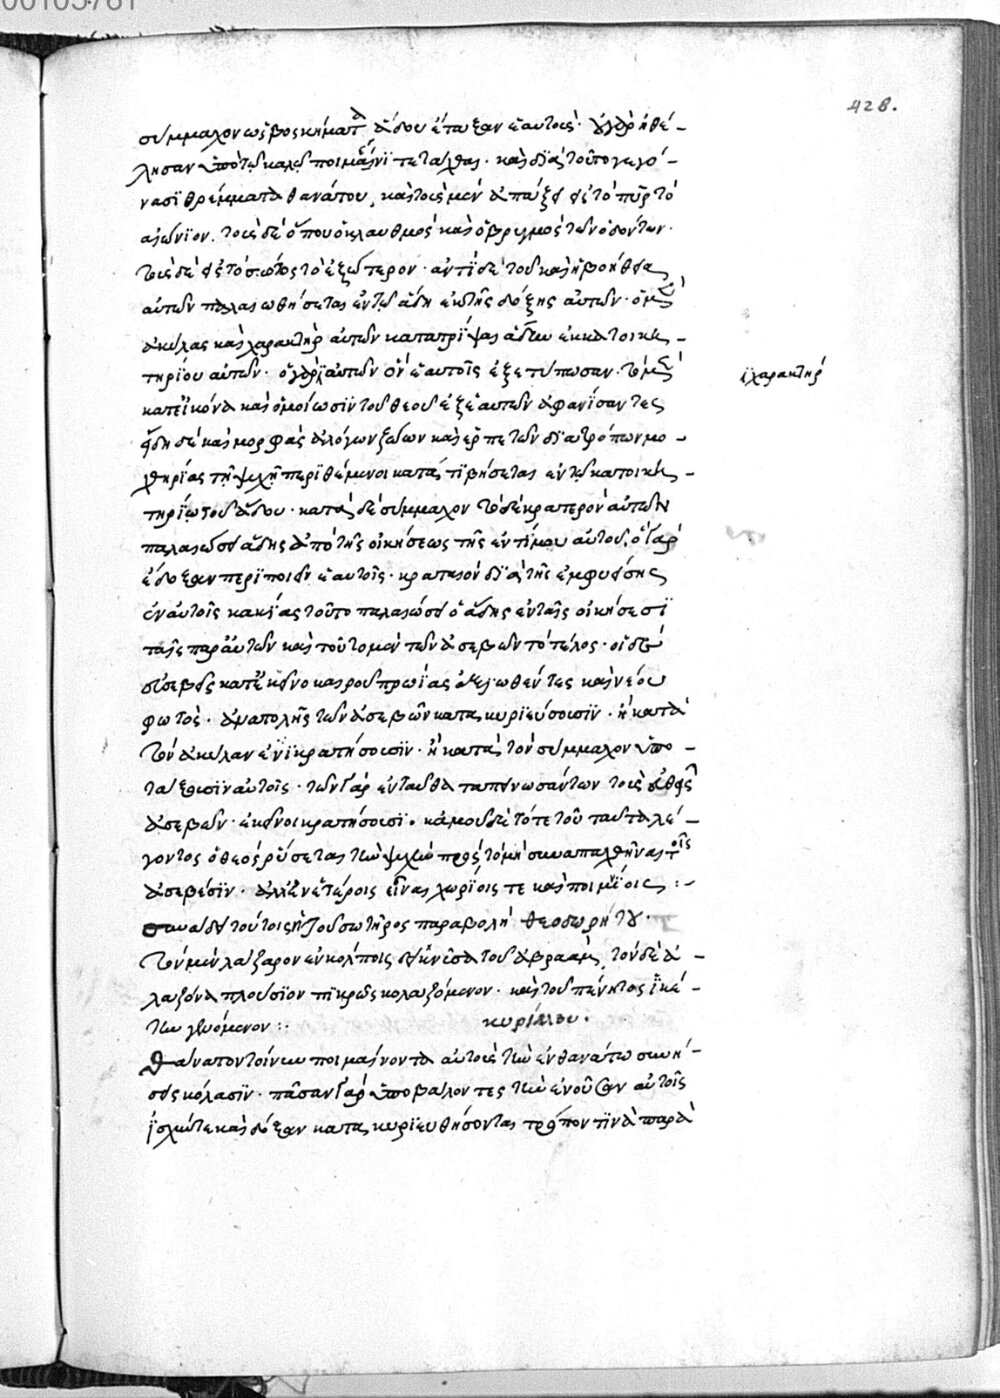 00105781
428.
σύμμαχον ὡς βοσκήματα ᾅδου ἔταξαν ἑαυτούς· οὐ γὰρ ἠθέ-
λησαν ὑπὸ τῷ καλῷ ποιμαίνι τετάχθαι· καὶ διὰ τοῦτο γεγό-
νασι θρέμματα θανάτου, καὶ τοὺς μὲν ἀπάξει εἰς τὸ πῦρ τὸ
αἰώνιον. τοὺς δὲ ὅπου ὁ κλαυθμὸς καὶ ὁ βρυγμὸς τῶν ὀδόντων·
τοὺς δὲ εἰς τὸ σκότος τὸ ἐξώτερον· ἀντὶ δὲ τοῦ καὶ ἡ βοήθεια
αὐτῶν παλαιωθήσεται ἐν τῷ ᾅδη ἐκ τῆς δόξης αὐτῶν· ὁ μὲν
ἀκύλας καὶ χαρακτὴρ αὐτῶν κατατρίψαι ᾅδην ἐκ κατοικη-
τηρίου αὐτῶν· ὁ γὰρ αὐτῶν ὃν ἑαυτοῖς ἐξετύπωσαν· τὸ μὲν
ἰχαρακτὴρ
κατ εἰκόνα καὶ ὁμοίωσιν τοῦ θεοῦ ἐξ ἑαυτῶν ἀφανίσαντες
εἴδη δὲ καὶ μορφὰς ἀλόγων ζώων καὶ ἑρπετῶν διὰ τρόπων μο-
χθηρίας τῇ ψυχῇ περιθέμενοι κατατριβήσεται ἐν τῷ κατοικη-
τηρίῳ τοῦ ᾅδου· κατὰ δὲ σύμμαχον τὸ δὲ κρατερὸν αὐτῶν
παλαιώσει ᾅδης ἀπὸ τῆς οἰκήσεως τῆς ἐντίμου αὐτοῦ. ὃ γὰρ
ἔδοξαν περιποιεῖν ἑαυτοῖς· κραταιὸν διὰ τῆς ἐμφυείσης
ἐν αὐτοῖς κακίας τοῦτο παλαιώσει ὁ ᾅδης ἐν ταῖς οἰκήσεσι
ταῖς παρ αὐτῶν καὶ τοῦτο μὲν τῶν ἀσεβῶν τὸ τέλος· οἱ δὲ
εὐσεβεῖς κατ ἐκεῖνο καιροῦ πρωίας ἀξιωθέντες καὶ νέου
φωτὸς· ἀνατολῆς τῶν ἀσεβῶν κατακυριεύσουσιν· ἢ κατὰ
τὸν ἀκύλαν ἐνικρατήσουσιν· ἢ κατὰ τὸν σύμμαχον ὑπο-
τάξουσιν αὐτοῖς· τῶν γὰρ ἐνταῦθα ταπεινωσάντων τοὺς εὐθεῖς
ἀσεβῶν· ἐκεῖνοι κρατήσουσι· κἀμοῦ δὲ τότε τοῦ ταῦτα λέ-
γοντος ὁ θεὸς ῥύσεται τὴν ψυχὴν πρὸς τὸ μὴ συναπαχθῆναι τοῖς
ἀσεβέσιν· ἀλλ ἐν ἑτέροις εἶναι χωρίοις τε καὶ ποιμνίοις :-
συνάδει τούτοις ἡ τοῦ σωτῆρος παραβολή θεοδωρήτου·
τὸν μὲν λάζαρον ἐν κόλποις δεικνῦσα τοῦ ἀβραάμ, τὸν δὲ ἀ-
λαζόνα πλούσιον πικρῶς κολαζόμενον· καὶ τοῦ πένητος ἱκέ-
την γενόμενον :· κυρίλλου·
θάνατον τοίνυν ποιμαίνοντα αὐτοὺς τὴν ἐν θανάτω συνή-
σεις κόλασιν· πᾶσαν γὰρ ὑποβάλοντες τὴν ἐνοῦσαν αὐτοῖς
ἰσχύν τε καὶ δόξαν κατακυριευθήσονται τρόπον τινὰ παρὰ